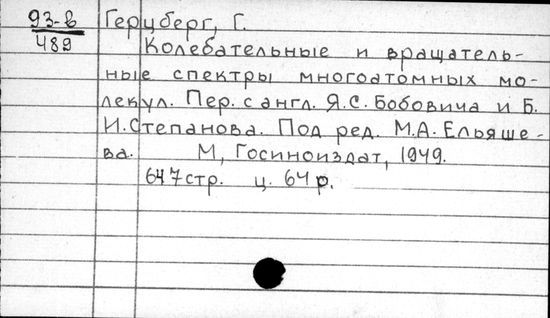 93-в Герцберг, Г.
489 Колебательные и вращатель-
ные спектры многоатомных мо-
лекул. Пер. с англ. Я.С. Бобовича и Б.
И. Степанова. Под ред. М.А. Ельяше-
ва. М, Госиноиздат, 1949.
647 стр. ц. 64 р.